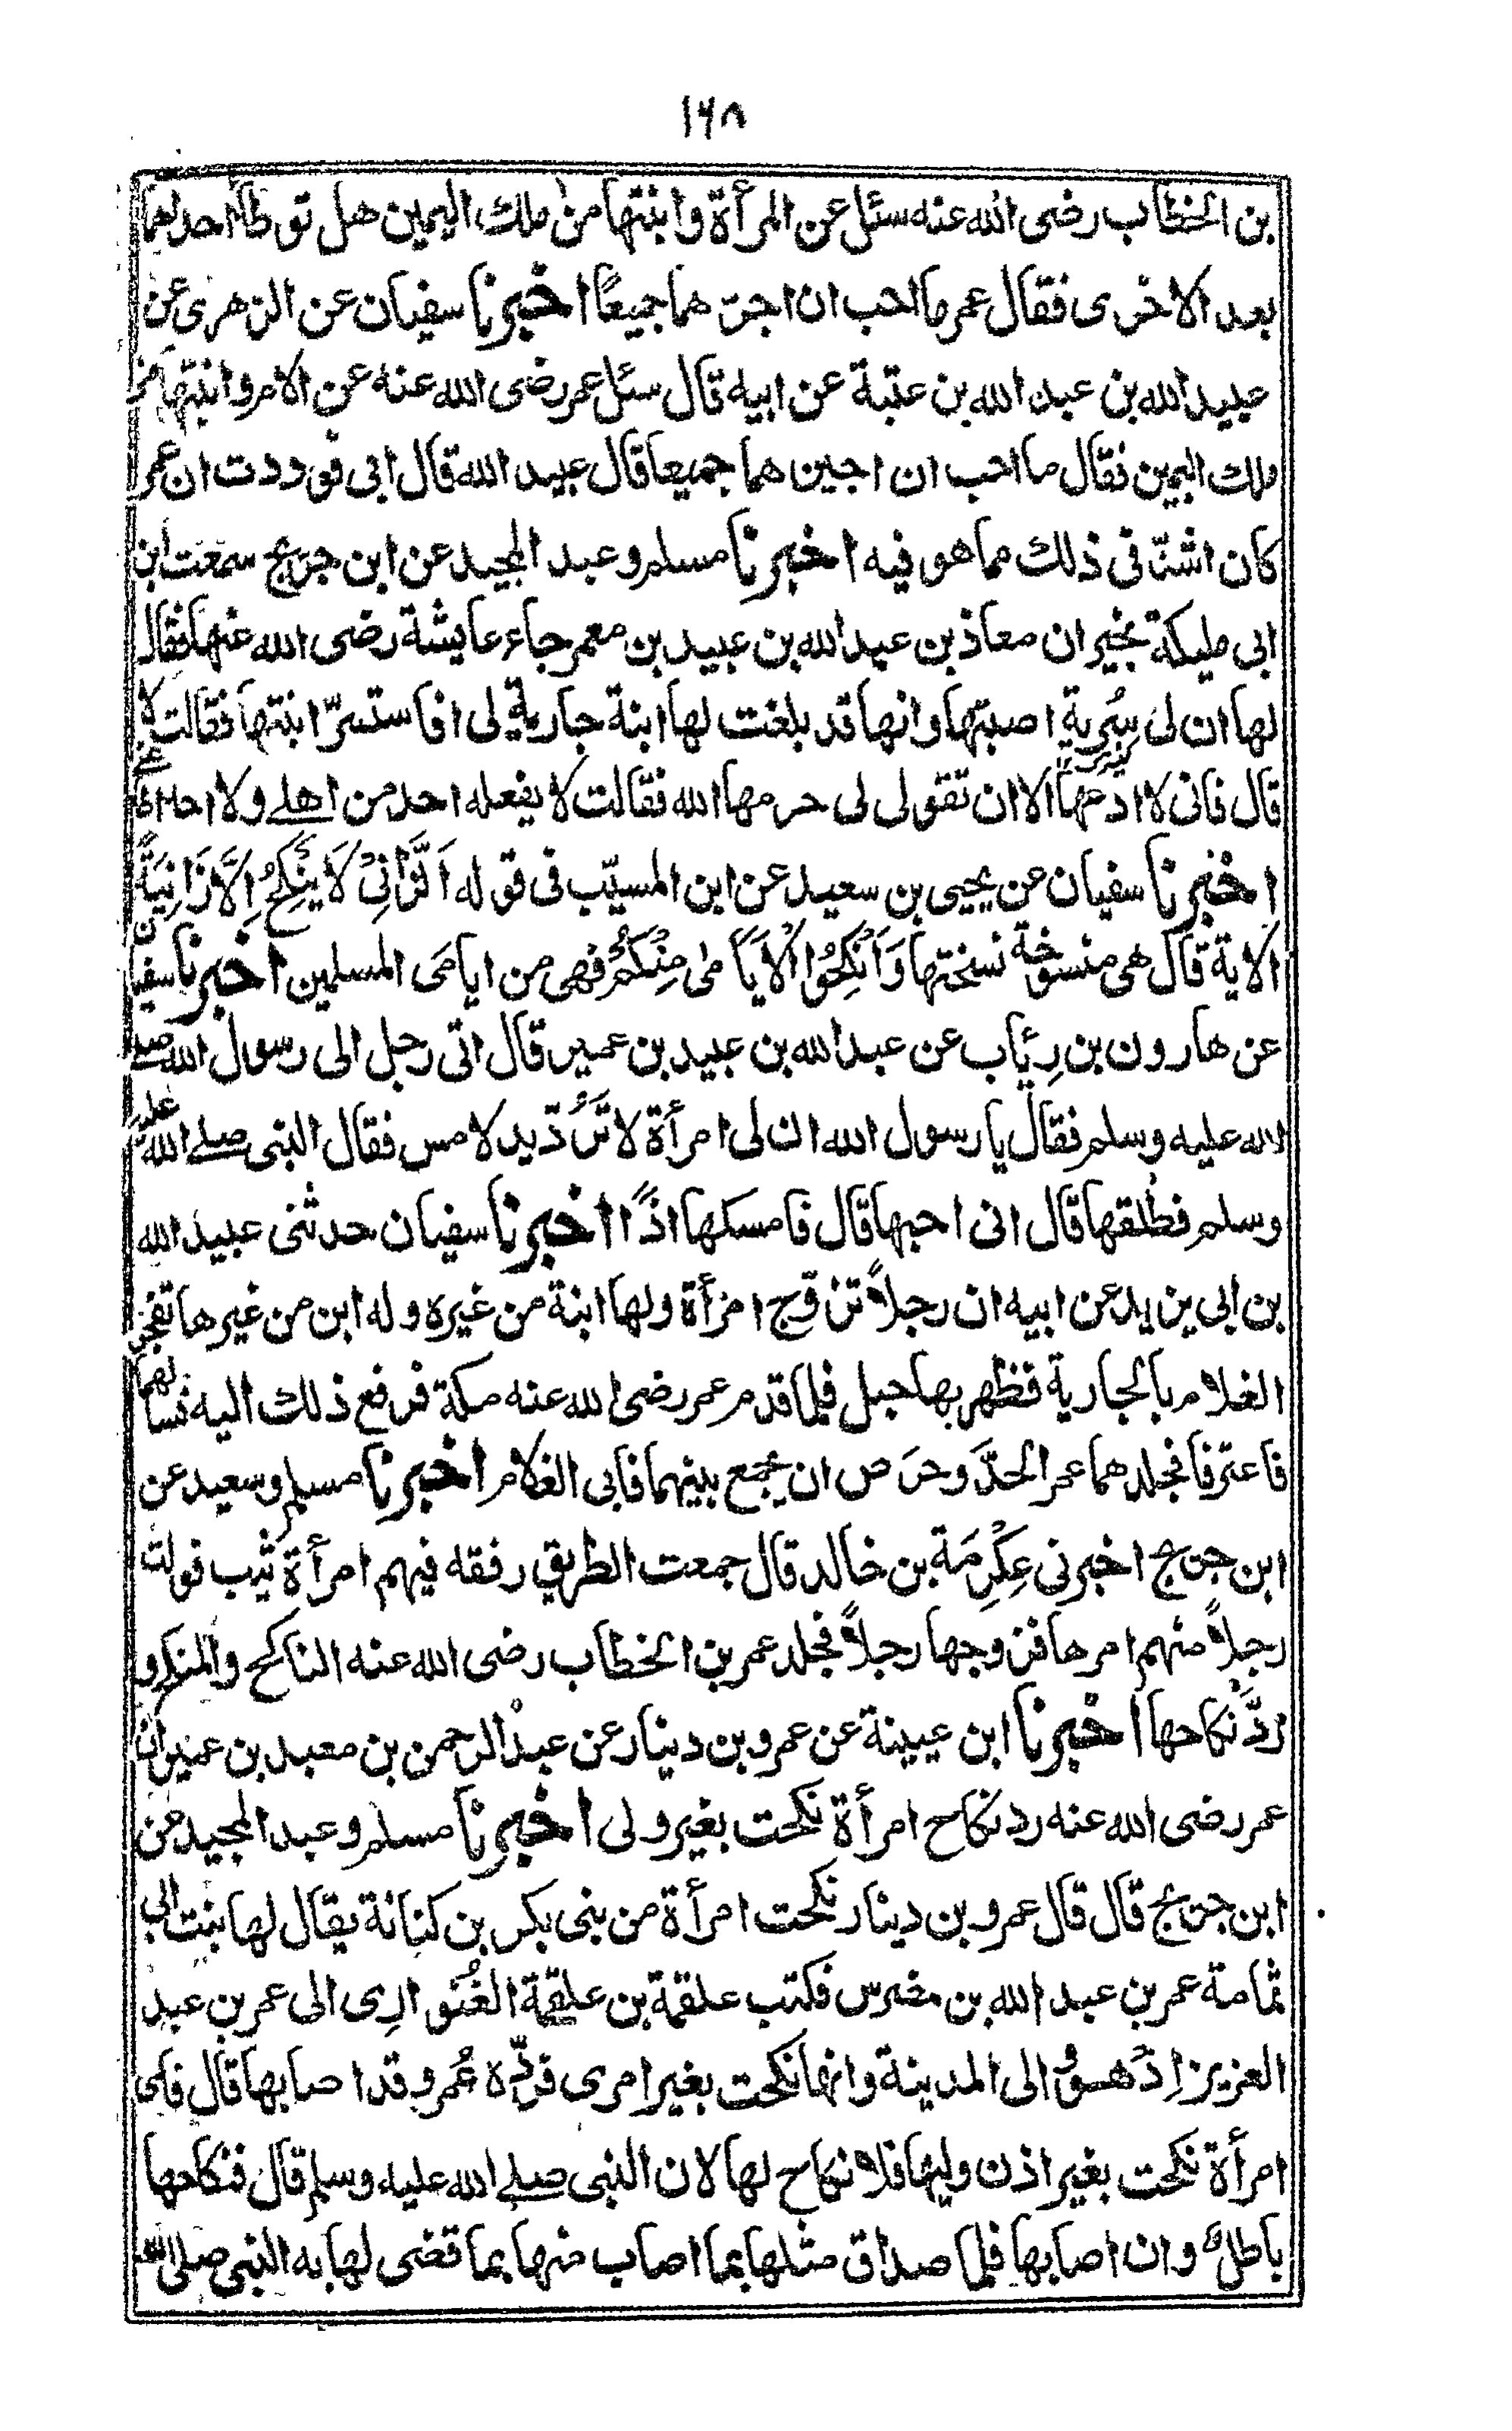 ١٦٨
بن الخطاب رضى الله عنه سئل عن المرأة وابنتها من ملك اليمين هل توطأ احدلهما
بعد الاخرى فقال عمر ما احب ان اجيزهما جميعًا اخبرنا سفيان عن الزهرى عن
عبيد الله بن عبد الله بن عتبة عن ابيه قال سئل عمر رضى الله عنه عن الام وابنتها من
ملك اليمين فقال ما احب ان اجيزهما جميعا قال عبيد الله قال ابى فوددت ان عمر
كان اشدّ فى ذلك مما هو فيه اخبرنا مسلم وعبد المجيد عن ابن جريج سمعت ابن
ابى مليكة يخبر ان معاذ بن عبد الله بن عبيد بن معمر جاء عايشة رضى الله عنها فقال
لها ان لى سُرية اصبتها وانها قد بلغت لها ابنة جارية لى افاستسرّ ابنتها فقالت لا
قال فانى لا ادعها الا ان تقولى لى حرمها الله فقالت لا يفعله احد من اهلے ولا احد اطاعنے
اخبرنا سفيان عن يحيى بن سعيد عن ابن المسيّب فى قوله اَلزَّانِىْ لَا يَنْكِحُ اِلَّا زَانِيَةً
الاية قال هى منسوخة نسختها وَاَنْكِحُوا الْاَيَامٰى مِنْكُمْ فهى من ايامَى المسلمين اخبرنا سفين
عن هارون بن رِئاب عن عبد الله بن عبيد بن عمير قال اتى رجل الى رسول الله صلے
الله عليه وسلم فقال يا رسول الله ان لى امرأة لا تَرُدّ يد لامس فقال النبى صلے الله عليه
وسلم فطلقها قال انى احبها قال فامسكها اذًا اخبرنا سفيان حدثنى عبيد الله
بن ابى يزيد عن ابيه ان رجلاً تزوّج امرأة ولها ابنة من غيره وله ابن من غيرها ففجر
الغلام بالجارية فظهر بها حبل فلما قدم عمر رضى الله عنه مكة فرفع ذلك اليه فسألهما
فاعترفا فجلدهما عمر الحدَّ وحرَص ان يجمع بينهما فابى الغلام اخبرنا مسلم وسعيد عن
ابن جريج اخبرنى عِكْرِمَة بن خالد قال جمعت الطريق رفقه فيهم امرأة ثيب فولت
رجلاً منهم امرها فزوجها رجلاً فجلد عمر بن الخطاب رضى الله عنه الناكح والمنكح و
ردَّ نكاحها اخبرنا ابن عيينة عن عمرو بن دينار عن عبد الرحمن بن معبد بن عمير ان
عمر رضى الله عنه رد نكاح امرأة نكحت بغير ولى اخبرنا مسلم وعبد المجيد عن
ابن جريج قال قال عمرو بن دينار نكحت امرأة من بنى بكر بن كنانة يقال لها بنت ابى
ثمامة عمر بن عبد الله بن مضرس فكتب علقمة بن علقمة العُتوارِى الى عمر بن عبد
العزيز اِذ هو الى المدينة وانها نكحت بغير امرى فردّه عُمر وقد اصابها قال فاى
امرأة نكحت بغير اذن وليها فلا نكاح لها لان النبى صلے الله عليه وسلم قال فنكاحها
باطل وان اصابها فلها صداق مثلها بما اصاب منها بما قضى لها به النبى صلى الله